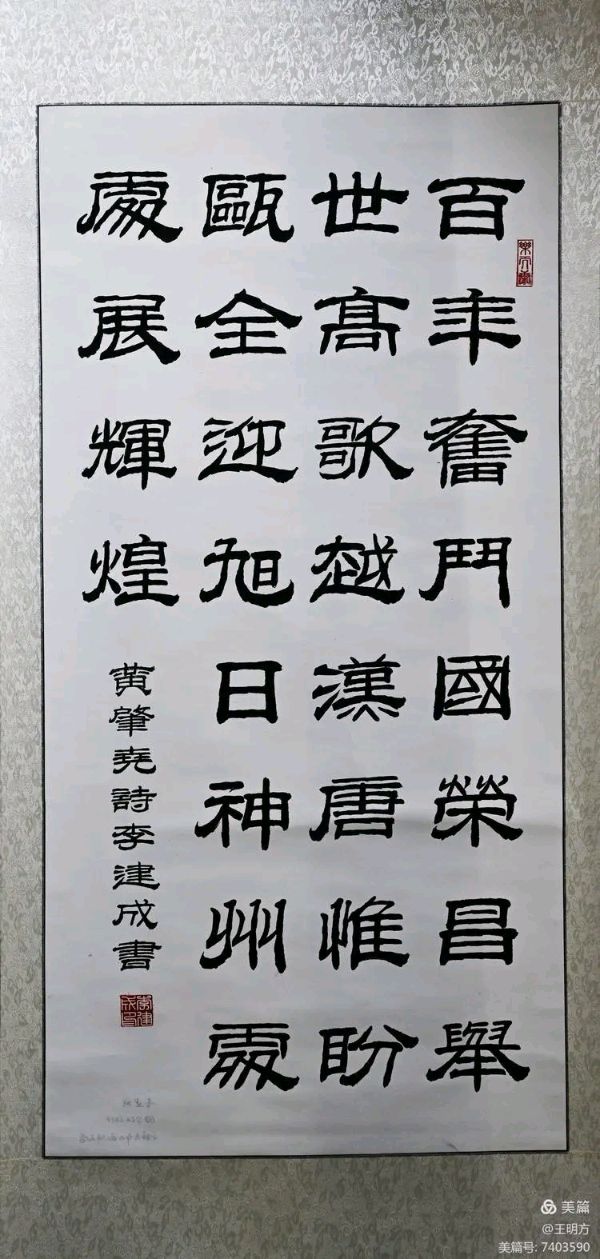 百年奮鬥國榮昌舉
世髙歌越漢唐惟盼
甌全迎旭日神州處
處展輝煌
黄肇堯詩李建成書
李建成印
美篇
@王明方
美篇号: 7403590